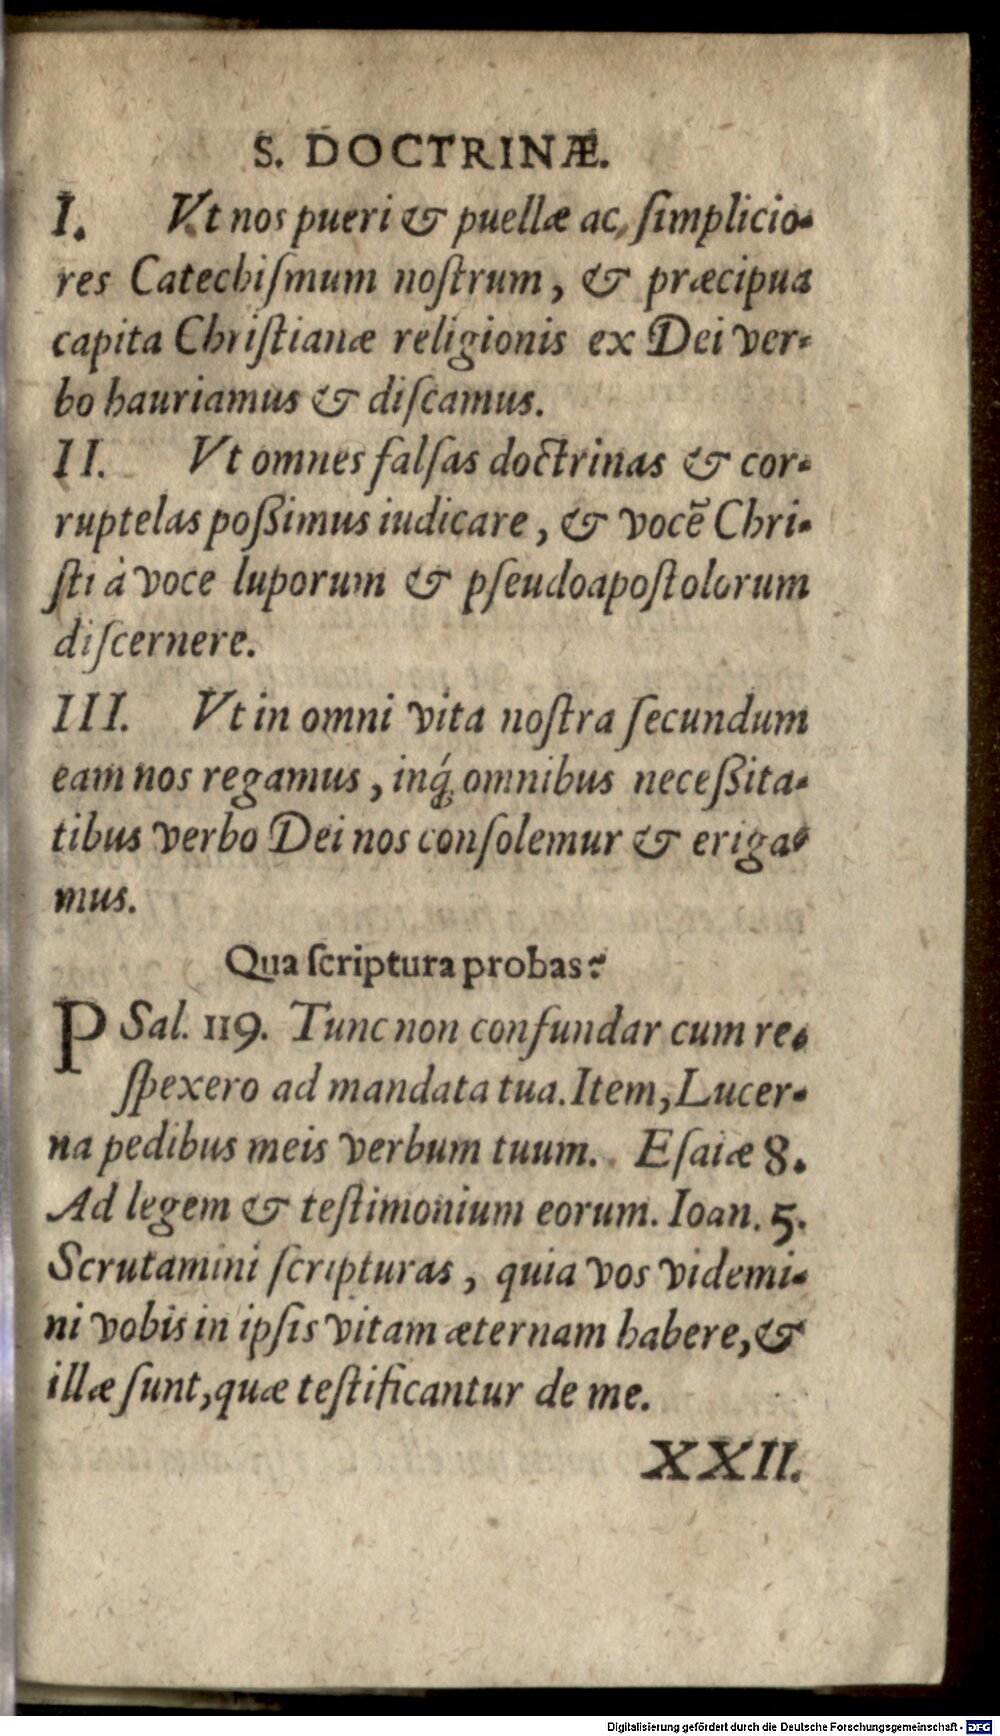 S. DOCTRINÆ.
I. Vt nos pueri & puellæ ac, ſimplicio-
res Catechiſmum noſtrum, & præcipua
capita Chriſtianæ religionis ex Dei ver-
bo hauriamus & diſcamus.
II. Vt omnes falſas doctrinas & cor-
ruptelas poßimus iudicare, & vocẽ Chri-
ſti à voce luporum & pſeudoapoſtolorum
diſcernere.
III. Vt in omni vita noſtra ſecundum
eam nos regamus, inq́; omnibus neceßita-
tibus verbo Dei nos conſolemur & eriga-
mus.
Qua ſcriptura probas?
PSal. 119. Tunc non confundar cum re-
ſpexero ad mandata tua. Item, Lucer-
na pedibus meis verbum tuum. Eſaiæ 8.
Ad legem & teſtimonium eorum. Ioan. 5.
Scrutamini ſcripturas, quia vos videmi-
ni vobis in ipſis vitam æternam habere, &
illæ ſunt, quæ teſtificantur de me.
XXII.
Digitalisierung gefördert durch die Deutsche Forschungsgemeinschaft - DFG